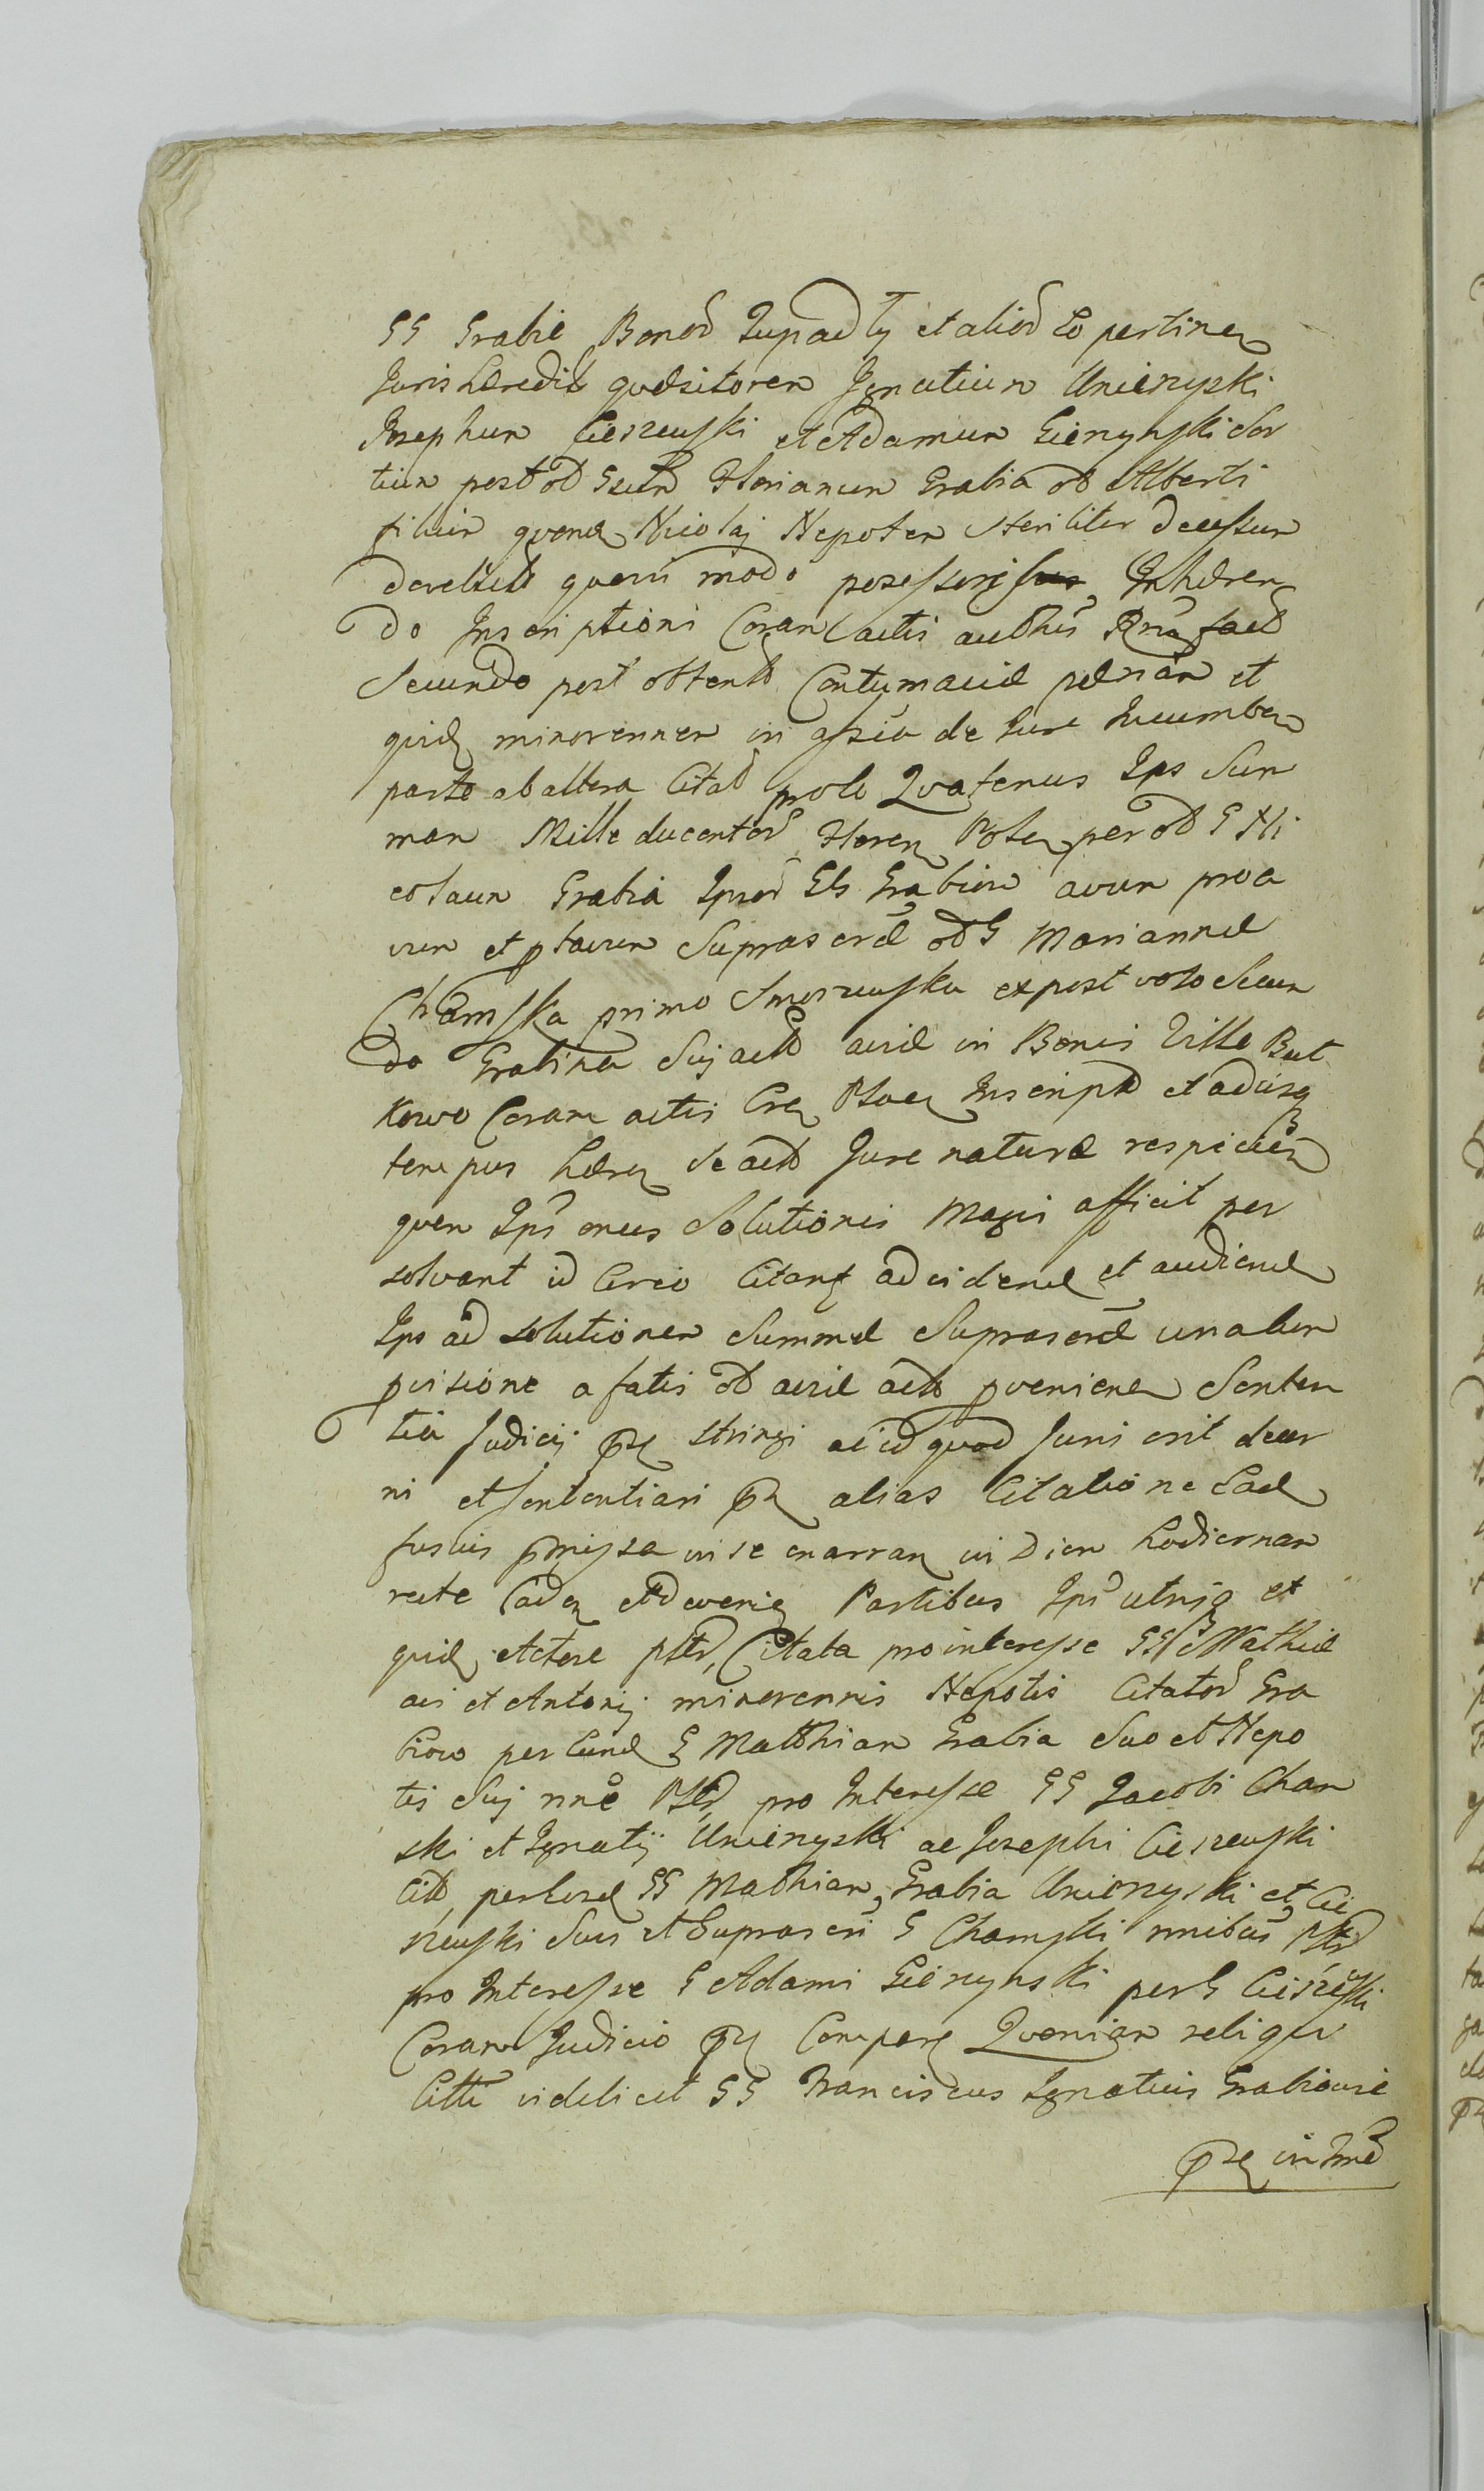 GG Grabie Bonor Zupadly et alior eo pertinen
Juris hæredit quæsitorem Ignatium Unierzyski
Josephum Cieszewski et Adamum Gierzynski Sor
tium post od Gsum Florianum Grabia od Alberti
filium quond Nicolai Nepotem steriliter decessum
derelict quarum modo possessores Inhæren
do Inscriptioni Coram actis authis Rna fact
Secundo post obtent Contumaciæ pænam et
quid minorennem in assia de Jure Incumben
parte ab altera Citat prole Quatenus Ips Sum
mam Mille ducentor Floren Polon per od G Ni
colaum Grabia Ipsor Gls Grabiow avum proa
vum et ptavum Suprascræ od G Mariannæ
Chamska primo Smorzewska ex post voto Secun
do Grabina Suj actus aviæ in Bonis Villæ But
kowo Coram actis Cren Plocen Inscript et ad usq
tempus hæren de act Jure naturæ respicien
quem Ips onus Solutionis Magis afficit per
solvant id Circo Citant ad vidend et audiend
Ips ad solutionem Summæ Suprascræ una cum
pvisione a fatis od aviæ acts pveniend Senten
tia Judicij pn stringi ac id quod Juris erit decer
ni et sententiari pn alias Citatione Ead
fusius pmissa in se enarran in Diem hodiernam
recte Caden Adveni Partibus Ips utrisq et
quid Actore pttd, Citata pro interesse GG Mathiæ
avi et Antonij minorennis Nepotis Citator Gra
biow per Eund G Matthiam Grabia Suo et Nepo
tis Suj nne Pttd, pro Interesse GG Jacobi Cham
ski et Ignatij Unierzyski ac Josephi Cieszewski
Citt, per Eosd GG Mathiam, Grabia Unierzyski et Cie
szewski Suis et Suprascri G Chamski nnibus pttd
pro Interesse G Adami Gierzynski per G Cieszewski
Coram Judicio pn Comparen Quoniam reliqui
Citti videlicet GG Franciscus Ignatius Grabiowie
pn in Tme